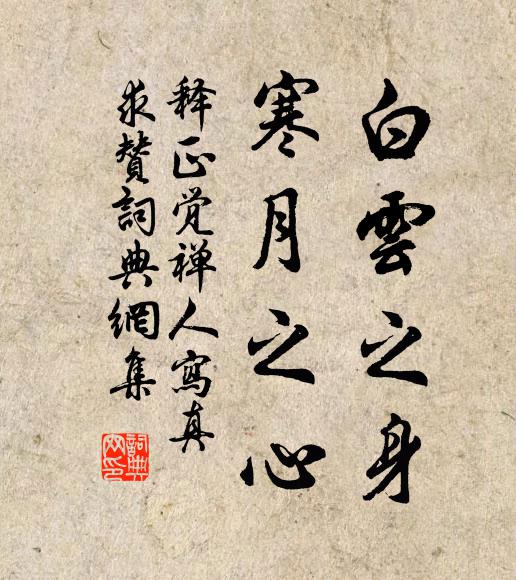 白雲之身
寒月之心
释正觉禅人寫真
求贊詞典網集
詞典
网印